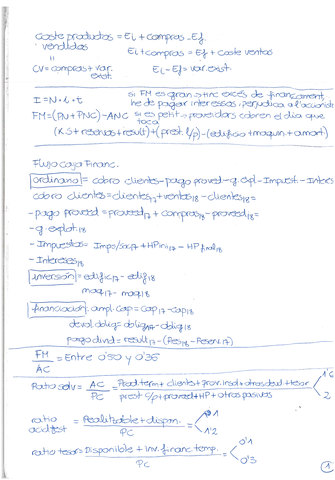 coste productos = Ei + compras - Ef
vendidos Ei + compras = Ef + coste ventas
"
CV = compras + var. Ei - Ef = var. exist
exist.
I = N · i · t si FM es gran → tinc excés de finançament,
he de pagar interessos, perjudica a l'accionista
FM = (PN + PNC) - ANC si es petit → proveïdors cobren el dia que
toca
(KS + reservas + result) + (prest. l/p) - (edificio + maquin + amort)
Flujo caja Financ.
ordinario = cobro clientes - pago proved - g. expl - Impuest - Interes
cobro clientes = clientes17 + ventas18 - clientes18 =
- pago proveed = proveed17 + compras18 - proveed18 =
- g. explot 18
- Impuestos = Impo/soc17 + HP ini17 - HP final18
- Intereses18
inversión = edific17 - edif18
maq17 - maq18
financiación: ampl. cap = cap17 - cap18
devol. oblig = oblig17 - oblig18
pago divid = result17 - (Res18 - Reserv17)
FM = Entre 0'30 y 0'36
AC
Ratio solv = AC = + clientes + prov. insol + otras deud + tesor 1'6
PC prest c/p + proveed + HP + otros pasivos 2
ratio = Realizable + dispon.
acid test PC 1'2
ratio tesor = Disponible + inv. financ temp. 0'1
PC 0'3
1